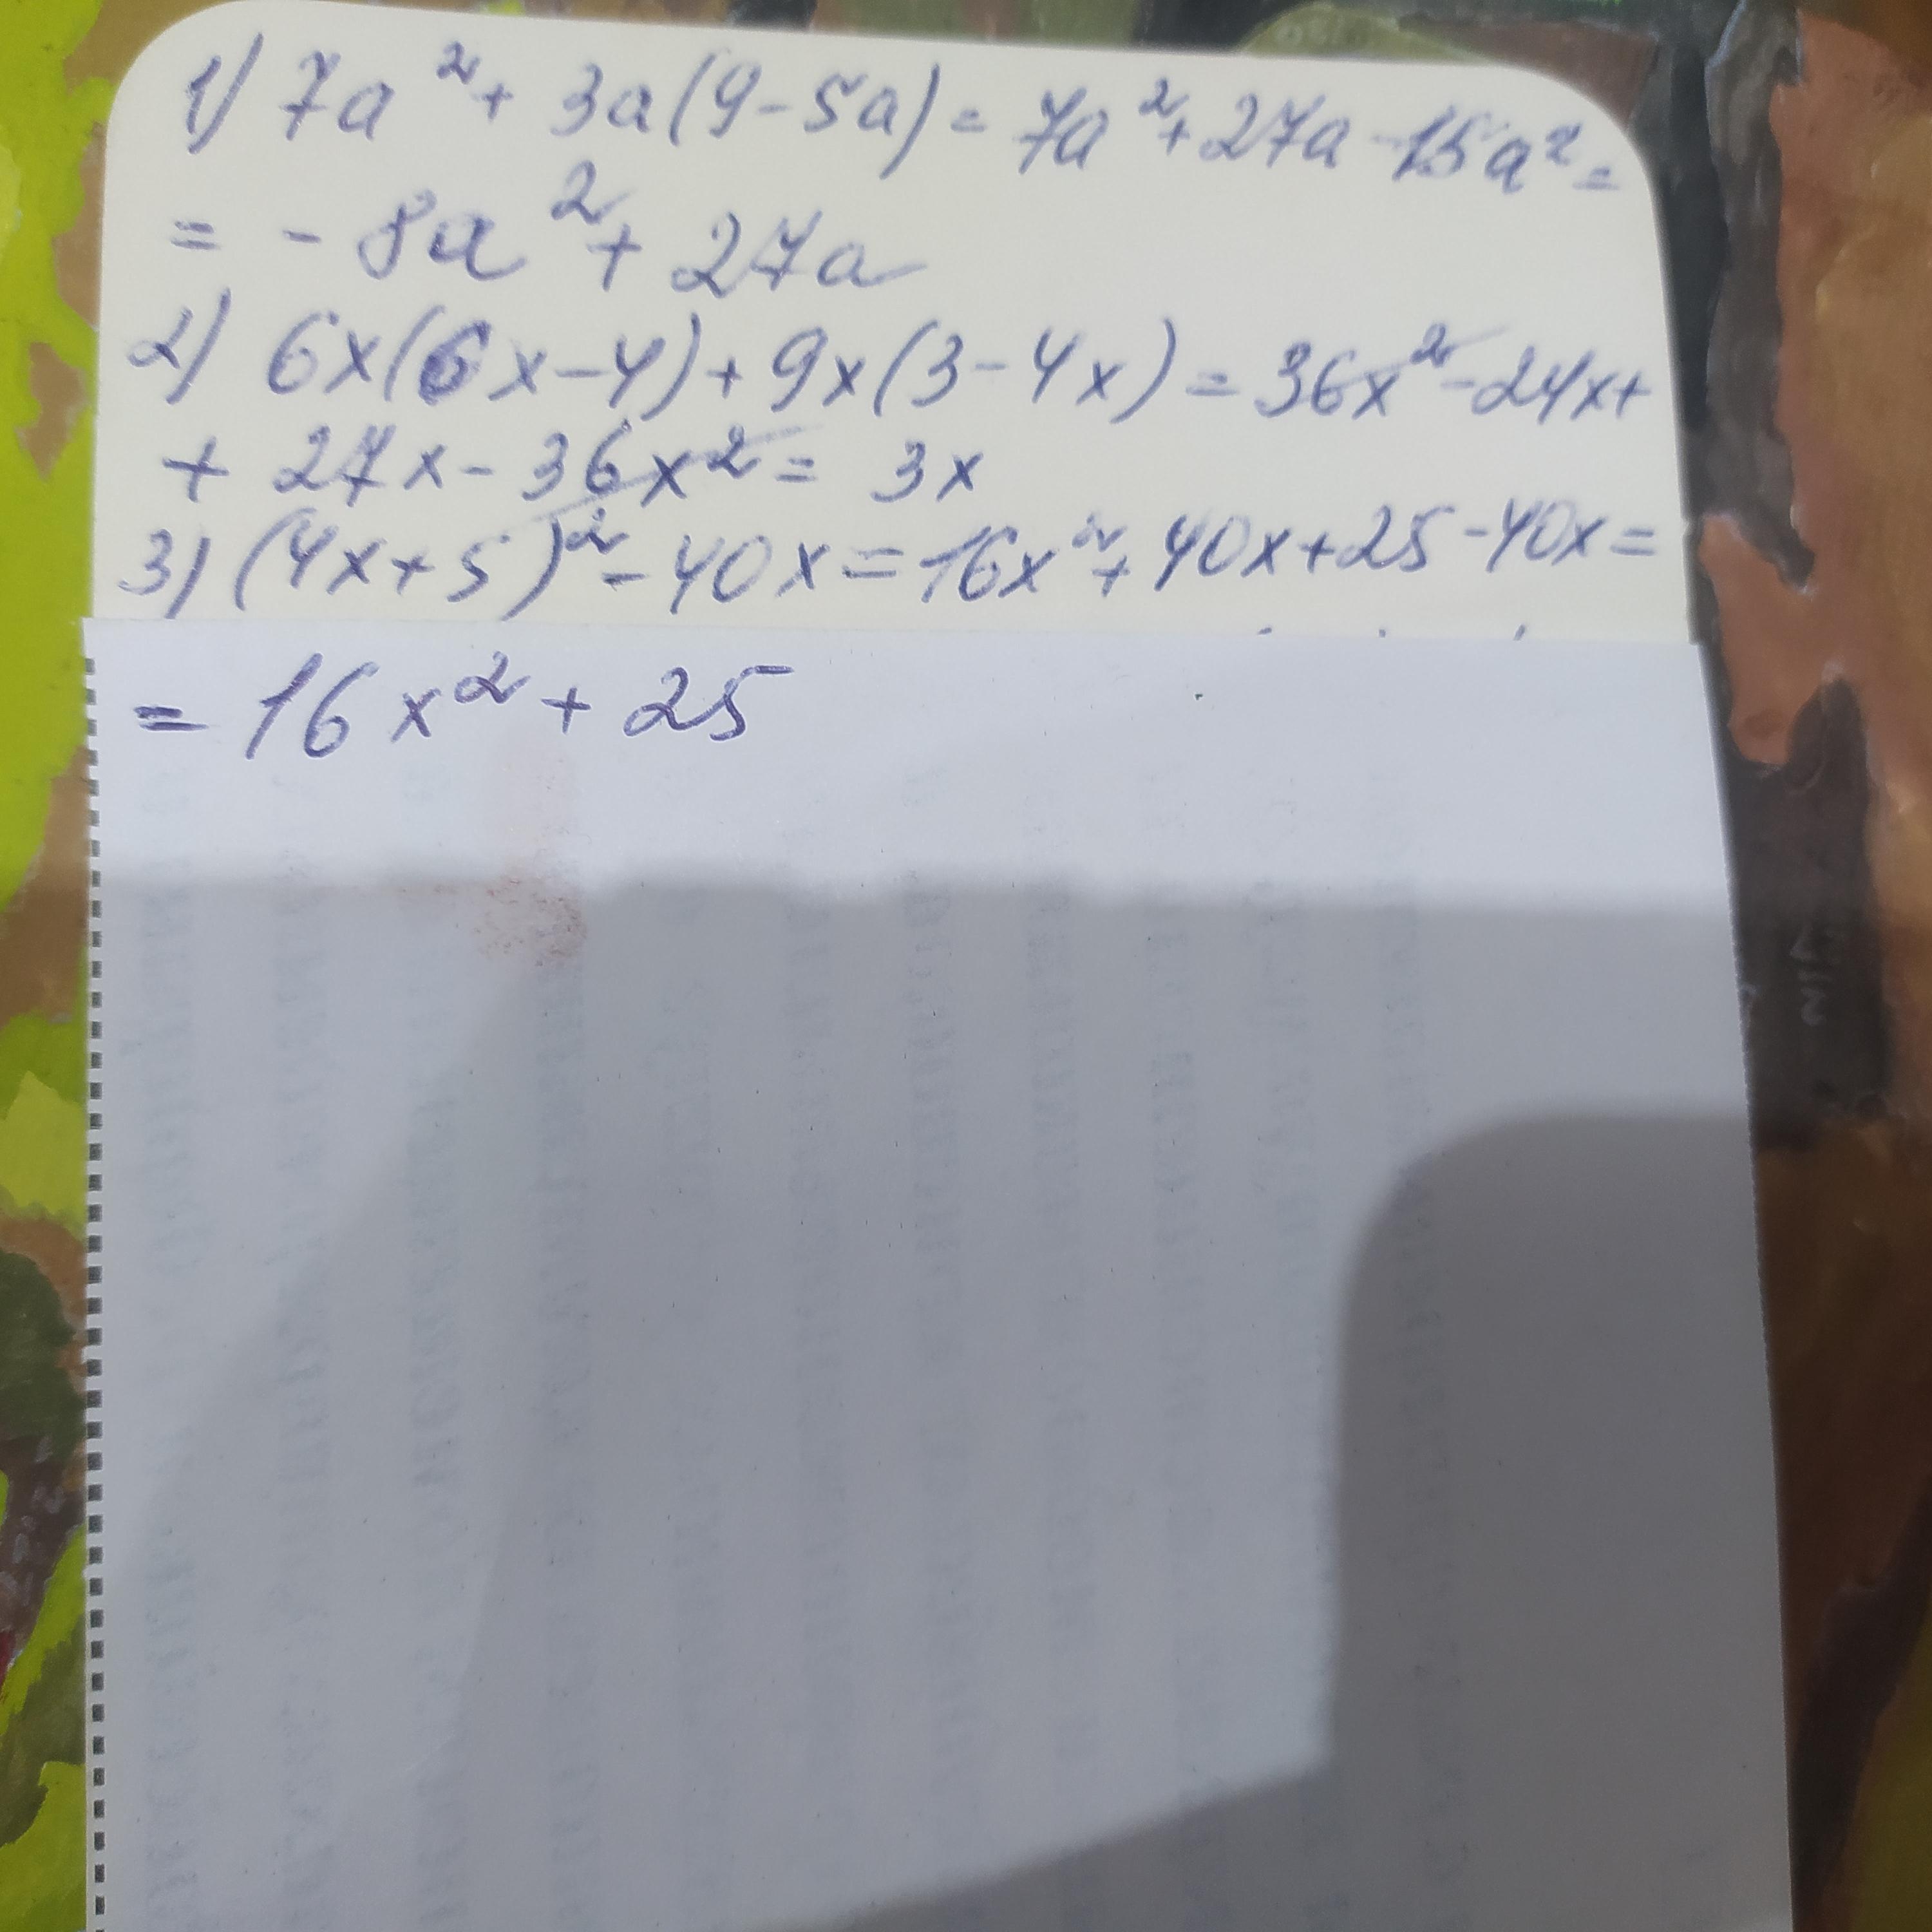 1) 7a² + 3a(9-5a) = 7a² + 27a - 15a² =
= - 8a² + 27a
2) 6x(6x-4) + 9x(3-4x) = 36x² - 24x +
+ 27x - 36x² = 3x
3) (4x+5)² - 40x = 16x² + 40x + 25 - 40x =
= 16x² + 25